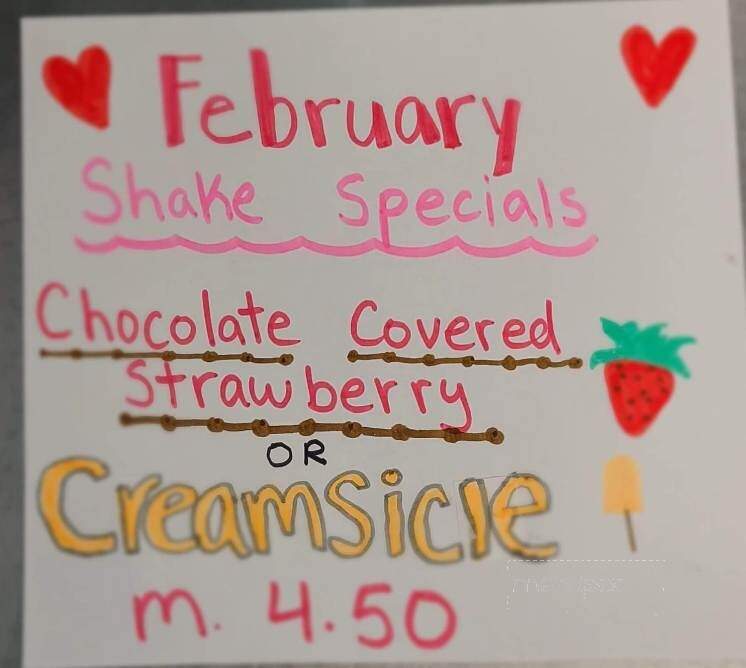 February
Shake Specials
Chocolate Covered
Strawberry
OR
Creamsicle
m. 4.50